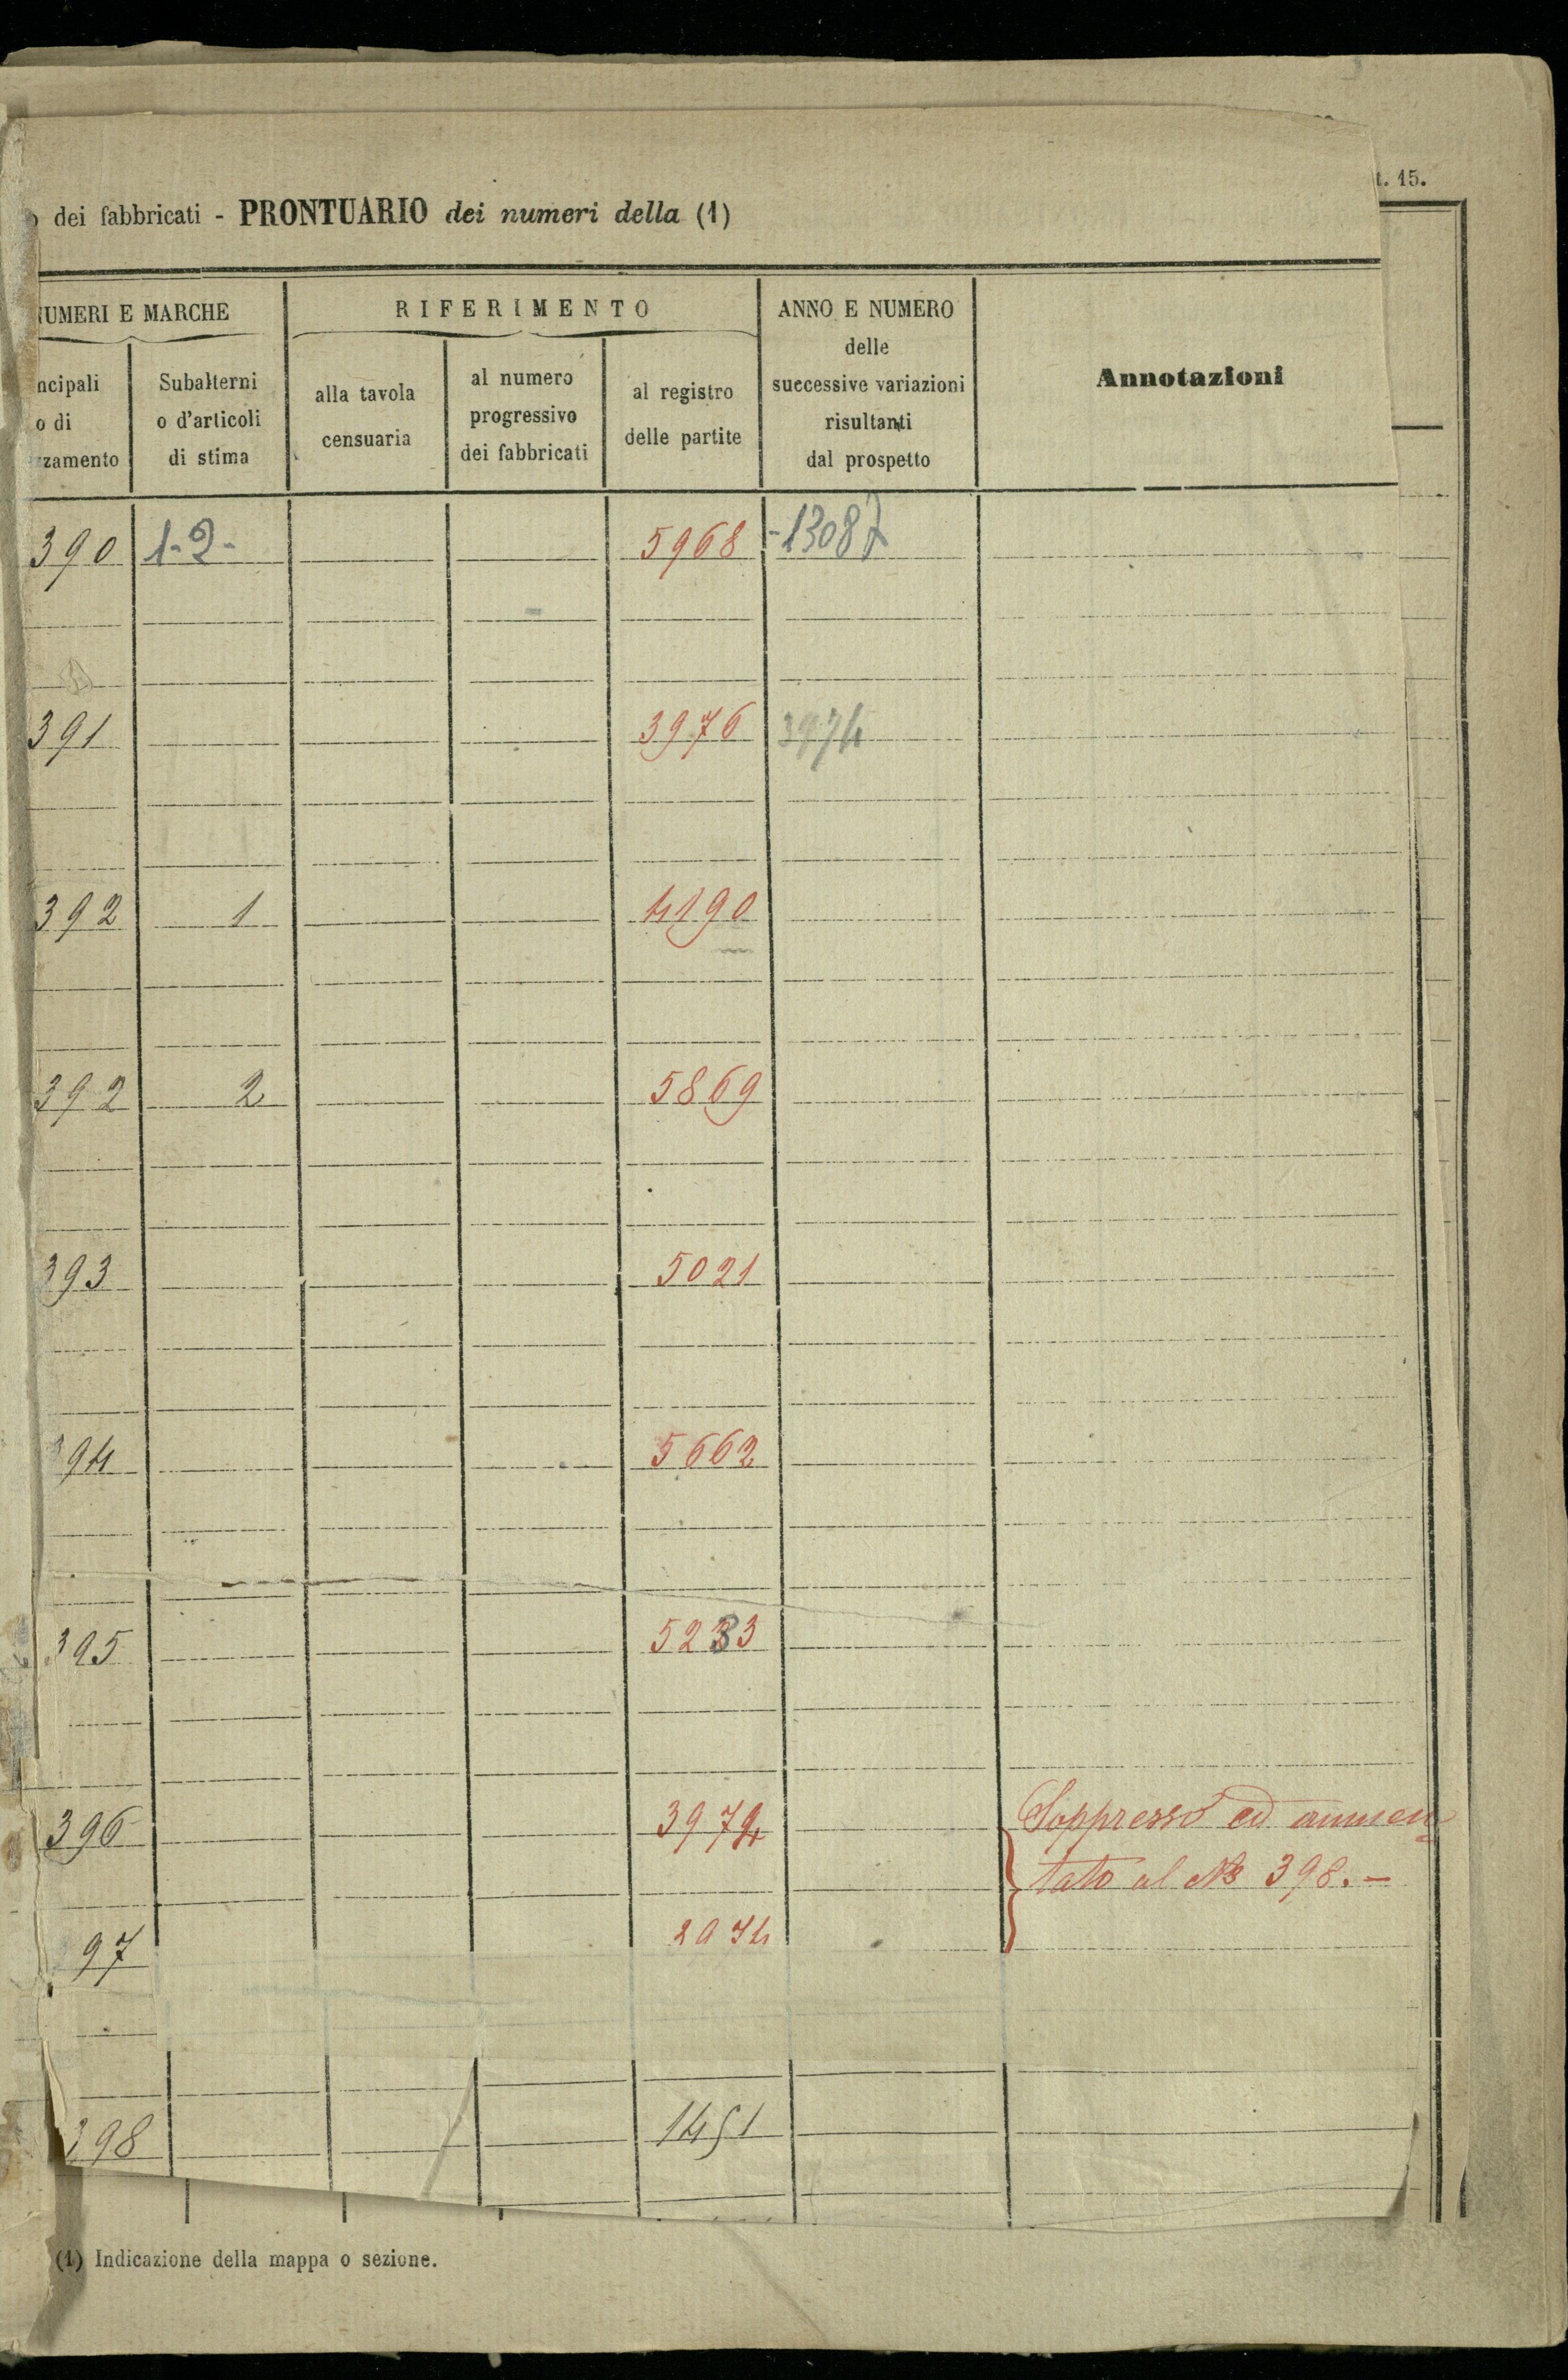 t. 15.
dei fabbricati - PRONTUARIO dei numeri della (1)
NUMERI E MARCHE
RIFERIMENTO
ANNO E NUMERO
delle
successive variazioni
risultanti
dal prospetto
Annotazioni
ncipali
o di
zzamento
Subalterni
o d'articoli
di stima
alla tavola
censuaria
al numero
progressivo
dei fabbricati
al registro
delle partite
390 1-2- 5968 -13087
391 3976 3974
392 1 4190
392 2 5869
393 5021
394 5662
395 5233
396 3974 Soppresso ed aumen
tato al No 398. -
97
398 1451
(1) Indicazione della mappa o sezione.